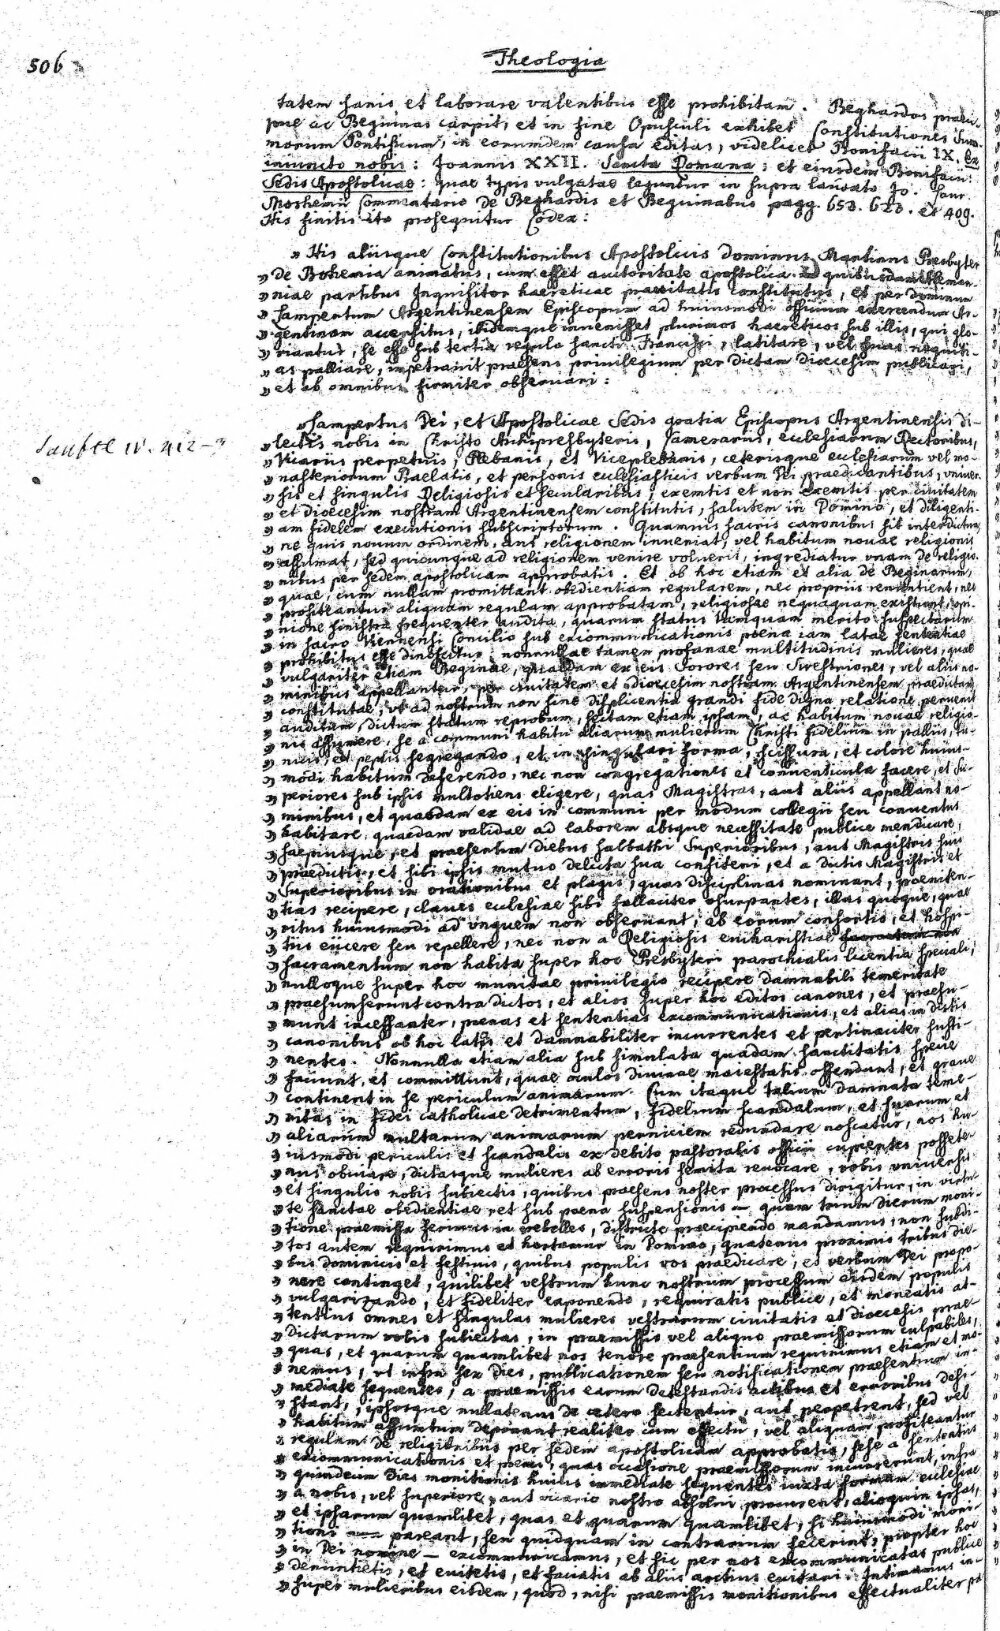 506
Theologia
tatem sanis et laborare valentibus esse prohibitam. Beghardos praeci-
pue ac Beguinas carpit, et in fine Opusculi exhibet Constitutiones Sum-
morum Pontificum, in eorumdem causa editas, videlicet Bonifacii IX. Ex
iniuncto nobis: Joannis XXII. Sancta Romana: et eiusdem Bonifacii:
Sedis Apostolicae: quae typis vulgatae leguntur in supra laudato Jo. Laur.
Moshemii Commentario de Beghardis et Beguinabus pagg. 653. 623. et 409.
His finitis ita prosequitur Codex:
» His aliisque Constitutionibus Apostolicis dominus Martinus Presbyter
» de Bohemia animatus, cum esset auctoritate apostolica in quibusdam Aleman-
» niae partibus Inquisitor haereticae pravitatis constitutus, et per dominum
» Lampertum Argentinensem Episcopum ad huiusmodi officium exercendum Ar-
» gentinam accersitus, ibidemque invenisset plurimos haereticos sub illis, qui glo-
» riantur, se esse sub tertia regula sancti Francisci, latitare, vel suas nequiti-
» as palliare, impetravit praesens privilegium per dictam dioecesim publicari,
» et ab omnibus firmiter observari:
» Lampertus Dei, et Apostolicae Sedis gratia Episcopus Argentinensis di-
» lectis nobis in Christo Archipresbyteris, Camerariis, ecclesiarum Rectoribus,
» Vicariis perpetuis, Plebanis, et Viceplebanis, ceterisque ecclesiarum vel mo-
» nasteriorum Praelatis, et personis ecclesiasticis verbum Dei praedicantibus, univer-
» sis et singulis Religiosis et secularibus, exemtis et non exemtis per civitatem
» et dioecesim nostram Argentinensem constitutis, salutem in Domino, et diligenti-
» am fidelem executionis subscriptorum. Quamvis sacris canonibus sit interdictum
» ne quis novum ordinem, aut religionem inveniat, vel habitum novae religionis
» assumat, sed quicunque ad religionem venire voluerit, ingrediatur unam de religio-
» nibus per sedem apostolicam approbatis. Et ob hoc etiam et alia de Beginarum,
» quae, cum nullam promittant obedientiam regularem, nec propriis renuntient, nec
» profiteantur aliquam regulam approbatam, religiosae nequaquam existunt, opi-
» nione sinistra frequenter audita, quarum status tamquam merito suspectarum
» in sacro Viennensi Concilio sub excommunicationis poena iam latae sententiae
» prohibitus esse dinoscitur: nonnullae tamen profanae multitudinis mulieres, quae
» vulgariter etiam Beginae, quaedam ex eis Sorores seu Swestriones, vel aliis no-
» minibus appellantur, per civitatem et dioecesim nostram Argentinensem praedictam
» constitutae, ut ad nostrum non sine displicentia grandi fide digna relatione pervenit
» auditum, dictum statum reprobum, sectam etiam ipsam, ac habitum novae religio-
» nis assumere, se a communi habitu aliarum mulierum Christi fidelium in palliis, tu-
» nicis, et peplis segregando, et in singulari forma, scissura, et colore huius-
» modi habitum deferendo, nec non congregationes et conventicula facere, et Su-
» periores sub ipsis multotiens eligere, quas Magistras, aut aliis appellant no-
» minibus, et quaedam ex eis in communi per modum collegii seu conventus
» habitare, quaedam validae ad laborem absque necessitate publice mendicare,
» saepiusque, et praesertim diebus sabbathi Superioribus, aut Magistris suis
» praedictis, et sibi ipsis mutuo delicta sua confiteri, et a dictis Magistris et
» Superioribus in orationibus et plagis, quas disciplinas nominant, poeniten-
» tias recipere, claves ecclesiae sibi fallaciter usurpantes, illas quoque, quae
» ritus huiusmodi ad unguem non observant, ab eorum consortiis, et hospi-
» tiis eiicere seu repellere, nec non a Religiosis eucharistiae
» sacramentum non habita super hoc Presbyteri parochialis licentia speciali,
» nulloque super hoc munitae privilegio recipere damnabili temeritate
» praesumserunt contra dictos, et alios super hoc editos canones, et praesu-
» munt incessanter, poenas et sententias excommunicationis, et alias in dictis
» canonibus ob hoc latas et damnabiliter incurrentes et pertinaciter susti-
» nentes. Nonnulla etiam alia sub simulata quadam sanctitatis specie
» faciunt, et committunt, quae oculos divinae maiestatis offendunt, et grave
» continent in se periculum animarum. Cum itaque talium damnata teme-
» ritas in fidei catholicae detrimentum, fidelium scandalum, et suarum et
» aliarum multarum animarum perniciem redundare noscatur, nos hu-
» iusmodi periculis et scandalis ex debito pastoralis officii cupientes posseten-
» nus obviare, dictasque mulieres ab erroris semita revocare, vobis universis
» et singulis nobis subiectis, quibus praesens noster processus dirigitur, in virtu-
» te sanctae obedientiae, et sub poena suspensionis — quam trium dierum moni-
» tione praemissa ferimus in rebelles, districte praecipiendo mandamus, non subdi-
» tos autem requirimus et hortamur in Domino, quatenus proximis tribus die-
» bus dominicis et festivis, quibus populis vos praedicare, et verbum Dei propo-
» nere continget, quilibet vestrum hunc nostrum processum eisdem populis
» vulgarizando, et fideliter exponendo, requiratis publice, et moneatis at-
» tentius omnes et singulas mulieres vestrarum civitatis et dioecesis prae-
» dictarum vobis subiectas, in praemissis vel aliquo praemissorum culpabiles,
» quas, et quarum quamlibet nos tenore praesentium requirimus etiam et mo-
» nemus, ut infra sex dies, publicationem seu notificationem praesentium im-
» mediate sequentes, a praemissis earum detestandis actibus et erroribus desi-
» stant, ipsosque nullatenus de cetero sectentur, aut perpetrent, sed vel
» habitum assumtum deponant realiter cum effectu, vel aliquam profiteantur
» regulam de religionibus per sedem apostolicam approbatis, sese a sententiis
» excommunicationis et poenis, quas occasione praemissorum incurrerunt, infra
» quindecim dies monitionis huius immediate sequentes iuxta formam ecclesiae
» a nobis, vel superiore, aut vicario nostro absolvi procurent, alioquin ipsas,
» et ipsarum quamlibet, quas et quarum quamlibet, si huiusmodi moni-
» tioni pareant, seu quidquam in contrarium fecerint, propter hoc
» in Dei nomine — excommunicamus, et sic per nos excommunicatas publice
» denuntietis, et evitetis, et faciatis ab aliis arctius evitari. Intimamus in-
» super mulieribus eisdem, quod, nisi praemissis monitionibus effectualiter pa-